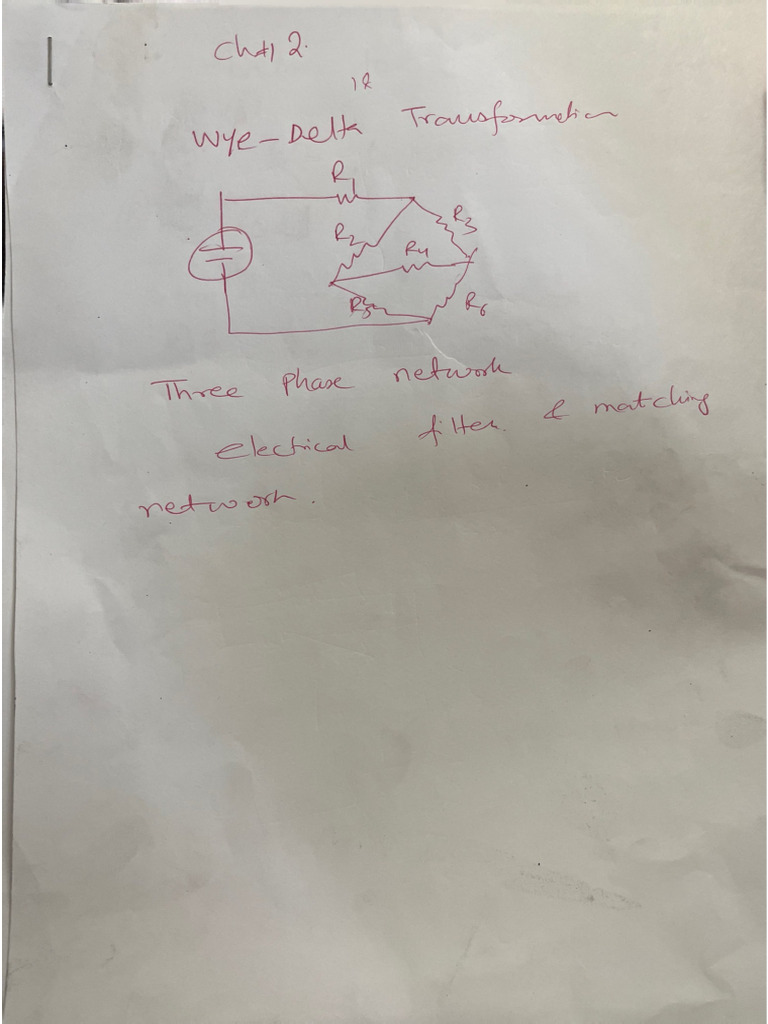 Ch#1 2.
12
Wye-Delta Transformation
R1
R2
R3
R4
R5
R6
Three phase network
electrical filter. & matching
network.